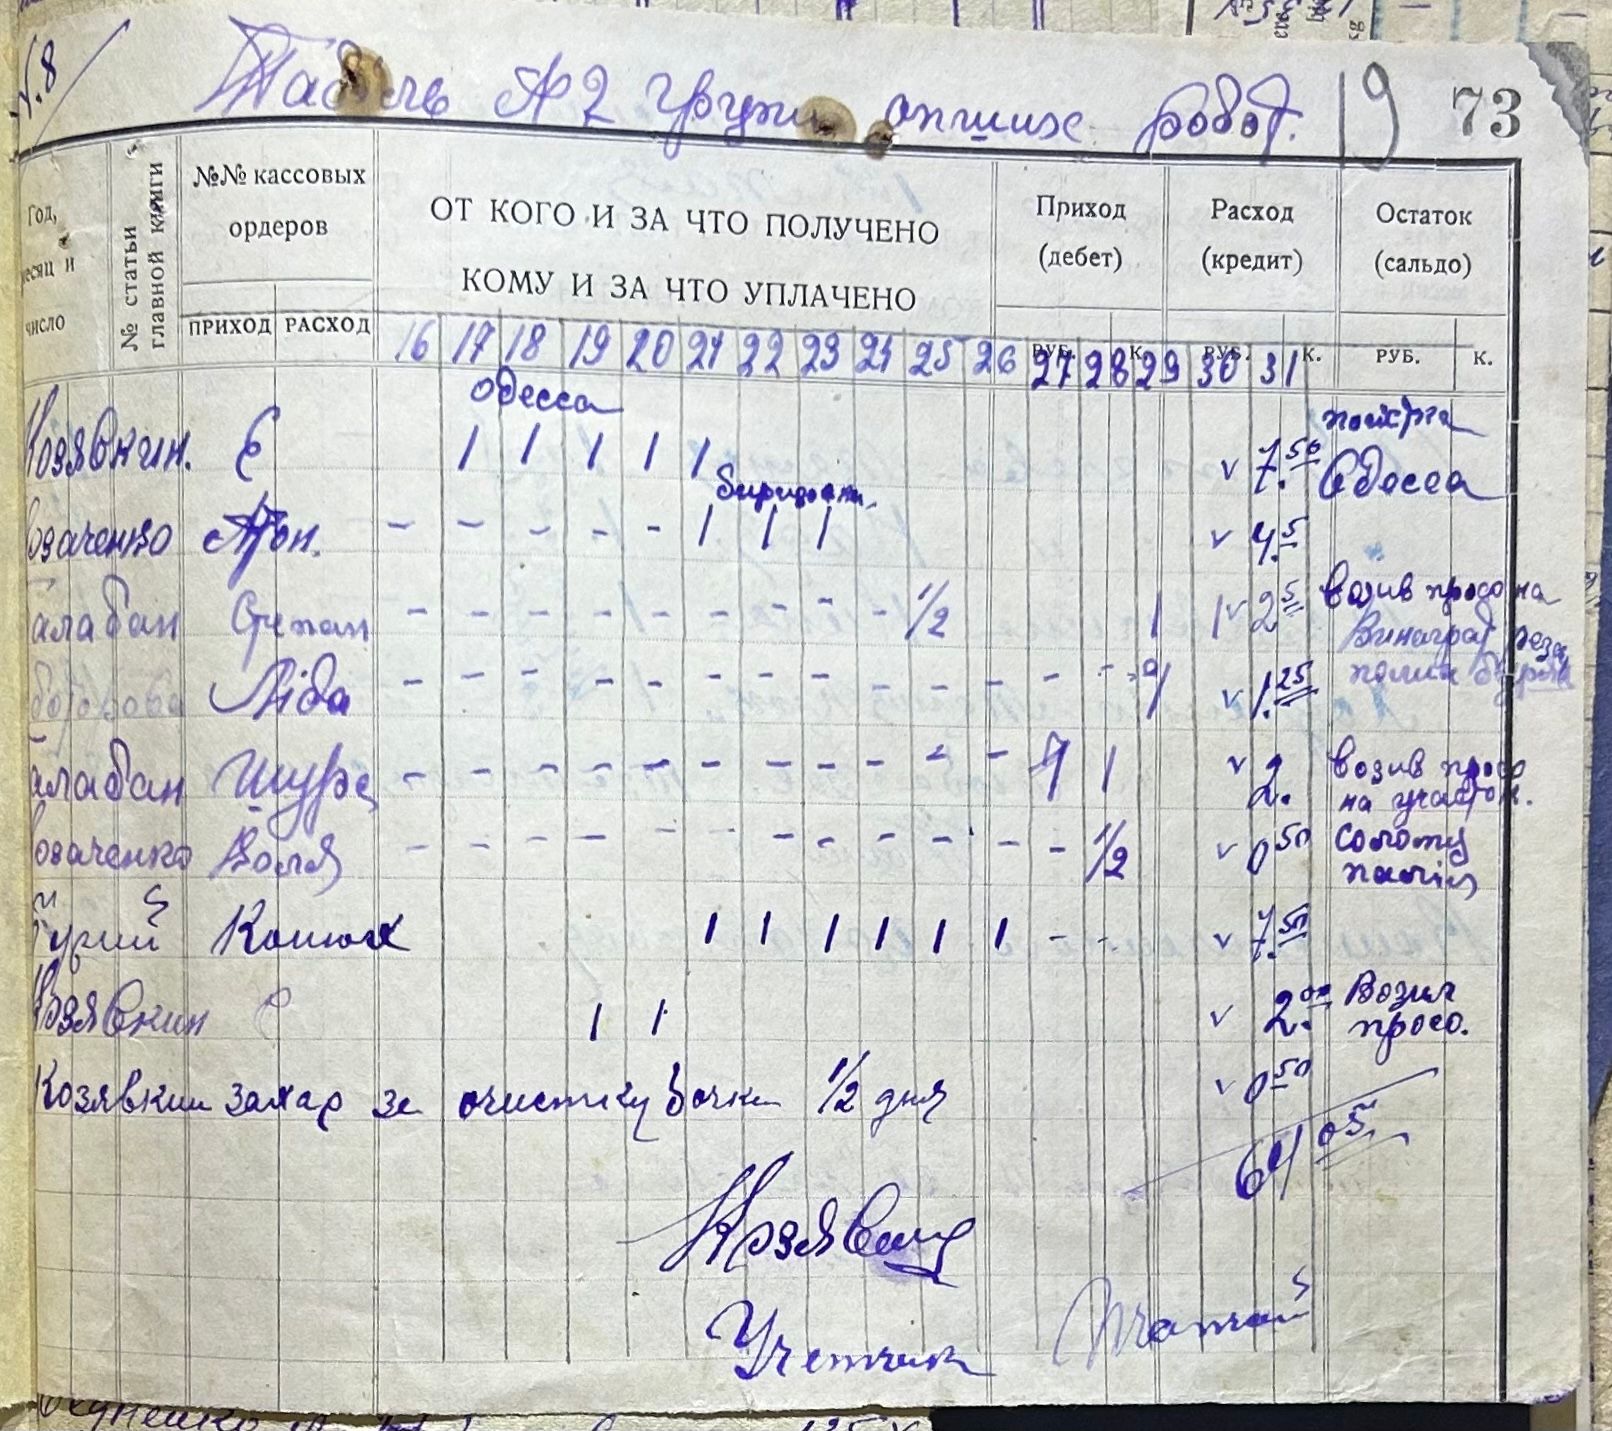 Табель № 2 Групи апших робот. 19 73
Год, месяц и число
№ статьи главной книги
№№ кассовых ордеров
ПРИХОД РАСХОД
ОТ КОГО И ЗА ЧТО ПОЛУЧЕНО
КОМУ И ЗА ЧТО УПЛАЧЕНО
Приход (дебет)
Расход (кредит)
Остаток (сальдо)
РУБ. К. РУБ. К. РУБ. К.
16 17 18 19 20 21 22 23 24 25 26 27 28 29 30 31
Одесса
Козявкин. Є 1 1 1 1 1 v 7.50 Одесса
озаченко 
- - - - - 1 1 1 v 4.5
алабан Степан - - - - - - - - - 1/2 1 1 v 2 5 возив просо на
Виноград
Ліда - - - - - - - - - - - - - v 1.25
алабан Шура - - - - - - - - - - - 1 1 v 2. возив просо
на участок.
озаченко Воля - - - - - - - - - - - - 1/2 v 0 50 солому
палил
Гурий 1 1 1 1 1 1 - - v 7.50
Козявкин Є 1 1 v 2.00 Возил
просо.
Козявкин захар за очистку бочки 1/2 дня v 0 50
64 05
Учетчик